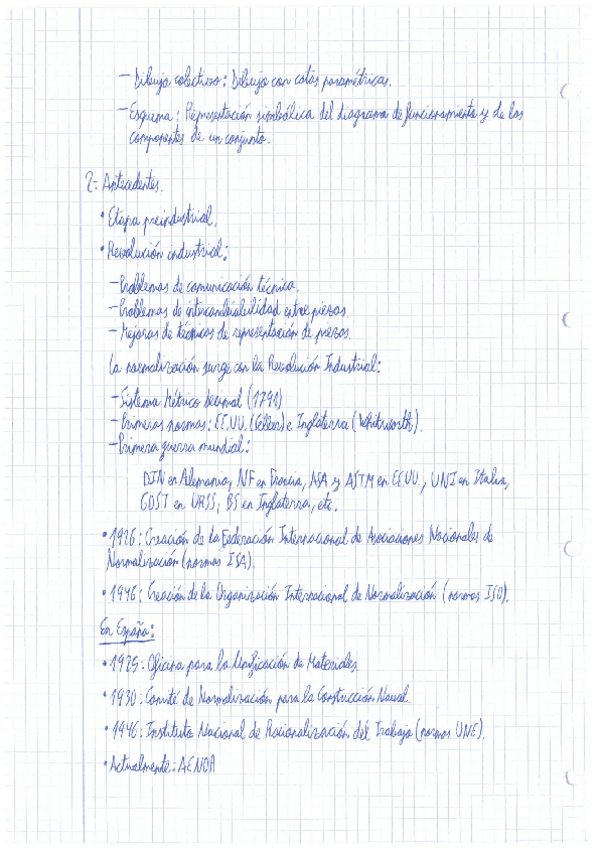 - Dibujo colectivo: Dibujo con cotas paramétricas.
- Esquema: Representación simbólica del diagrama de funcionamiento y de los
componentes de un conjunto.
2- Antecedentes.
• Etapa preindustrial.
• Revolución industrial:
- Problemas de comunicación técnica.
- Problemas de intercambiabilidad entre piezas.
- Mejoras de técnicas de representación de piezas.
La normalización surge con la Revolución Industrial:
- Sistema Métrico Decimal (1791)
- Primeras normas: EE.UU. (Sellers) e Inglaterra (Whitworth).
- Primera guerra mundial:
DIN en Alemania, NF en Francia, ASA y ASTM en EEUU., UNI en Italia,
GOST en URSS, BS en Inglaterra, etc.
• 1926: Creación de la Federación Internacional de Asociaciones Nacionales de
Normalización (normas ISA).
• 1946: Creación de la Organización Internacional de Normalización (normas ISO).
En España:
• 1925: Oficina para la Unificación de Materiales.
• 1930: Comité de Normalización para la Construcción Naval.
• 1946: Instituto Nacional de Racionalización del Trabajo (normas UNE).
• Actualmente: AENOR